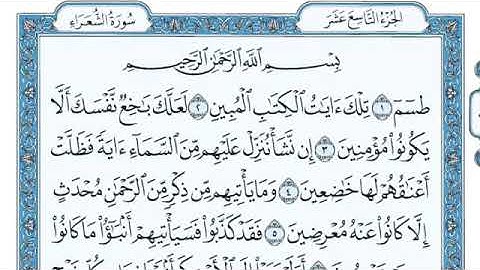 الجزء التاسع عشر
سورة الشعراء
بِسْمِ ٱللَّهِ ٱلرَّحْمَٰنِ ٱلرَّحِيمِ
طسٓمٓ ١ تِلْكَ ءَايَٰتُ ٱلْكِتَٰبِ ٱلْمُبِينِ ٢ لَعَلَّكَ بَٰخِعٌ نَّفْسَكَ أَلَّا
يَكُونُوا۟ مُؤْمِنِينَ ٣ إِن نَّشَأْ نُنَزِّلْ عَلَيْهِم مِّنَ ٱلسَّمَآءِ ءَايَةً فَظَلَّتْ
أَعْنَٰقُهُمْ لَهَا خَٰضِعِينَ ٤ وَمَا يَأْتِيهِم مِّن ذِكْرٍ مِّنَ ٱلرَّحْمَٰنِ مُحْدَثٍ
إِلَّا كَانُوا۟ عَنْهُ مُعْرِضِينَ ٥ فَقَدْ كَذَّبُوا۟ فَسَيَأْتِيهِمْ أَنۢبَٰٓؤُا۟ مَا كَانُوا۟